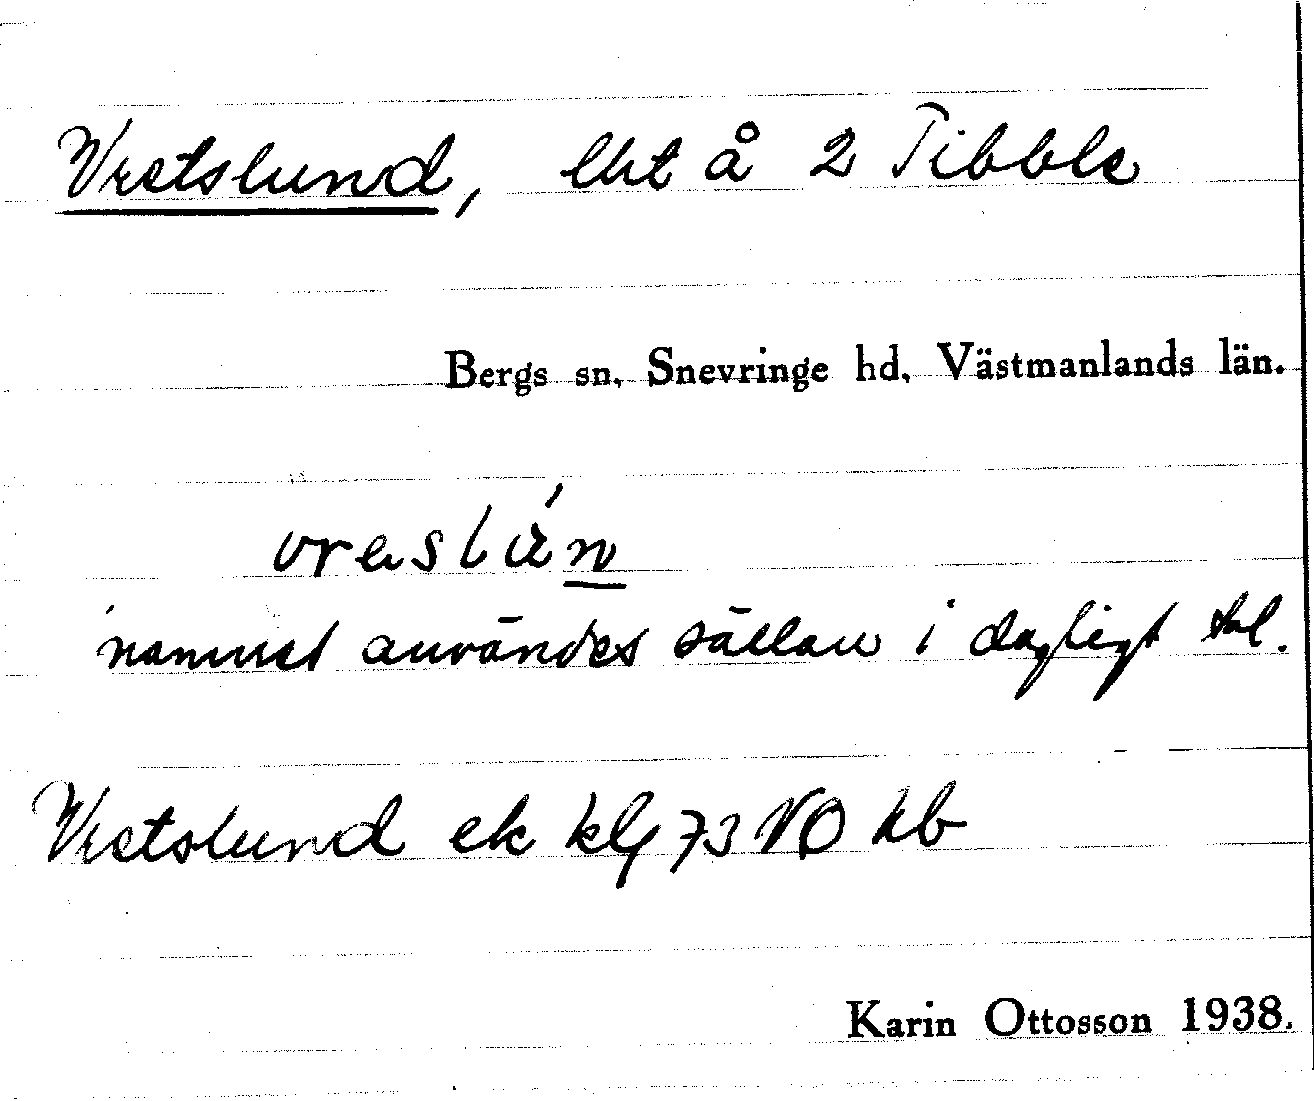 Vretslund, lht å 2 Tibble
Bergs sn, Snevringe hd, Västmanlands län.
namnet användes sällan i dagligt tal.
Vretslund ek klf 73 NO kb
Karin Ottosson 1938.